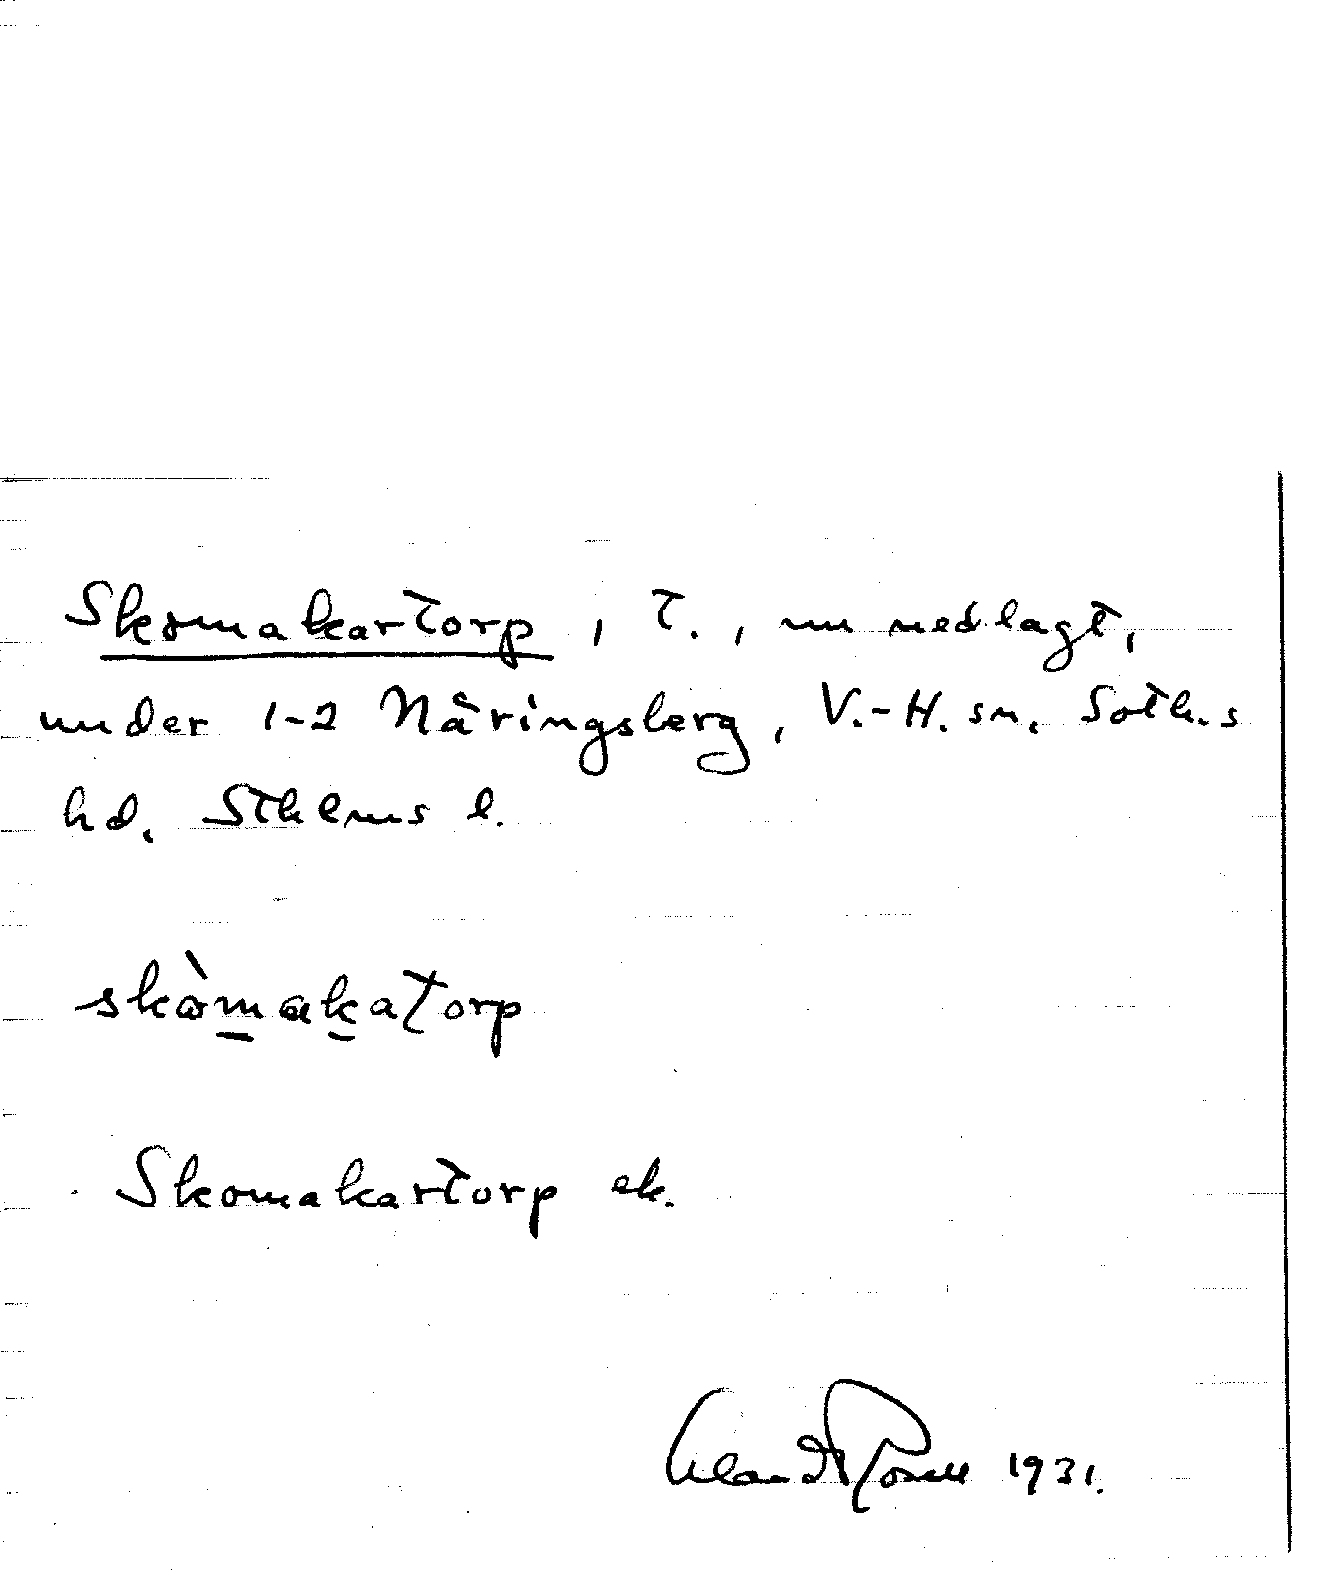 Skomakartorp, t., nu nedlagt,
under 1-2 Näringsberg, V.-H. sn. Soth.s
hd. Sthlms l.
skòmakatorp
Skomakartorp ek.
1931.